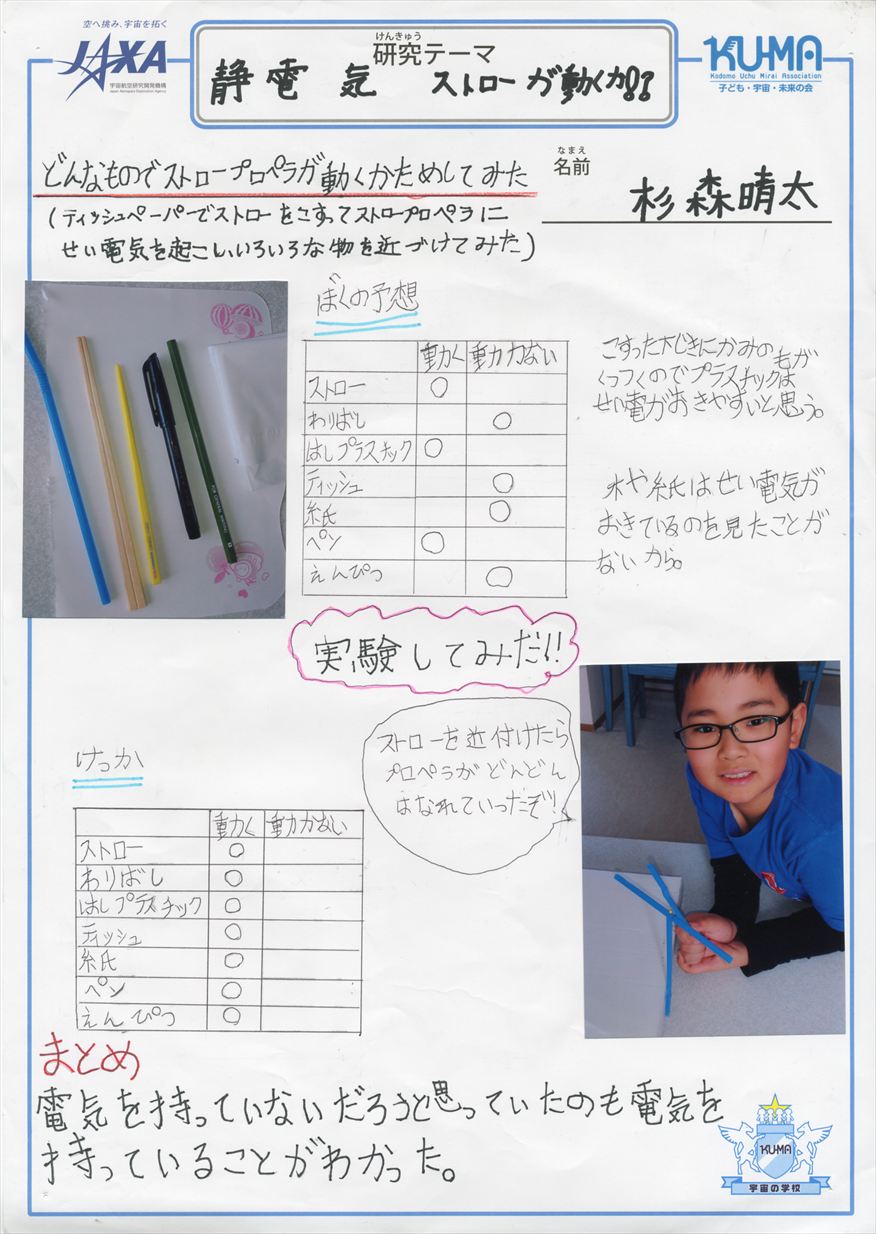 空へ挑み、宇宙を拓く
JAXA
宇宙航空研究開発機構
Japan Aerospace Exploration Agency
けんきゅう
研究テーマ
静電気 ストローが動くか!?
KU-MA
Kodomo Uchu Mirai Association
子ども・宇宙・未来の会
どんなものでストロープロペラが動くかためしてみた
なまえ
名前
杉森晴太
(ティッシュペーパーでストローをこすってストロープロペラに
せい電気を起こし、いろいろな物を近づけてみた)
ぼくの予想
動く 動かない
ストロー ○
わりばし ○
はしプラスチック ○
ティッシュ ○
紙 ○
ペン ○
えんぴつ ○
こすった下じきにかみのもが
くっつくのでプラスチックは
せい電がおきやすいと思う。
木や紙はせい電気が
おきているのを見たことが
ないから。
実験してみだ!!
ストローを近付けたら
プロペラがどんどん
はなれていったぞ!
けっか
動く 動かない
ストロー ○
わりばし ○
はしプラスチック ○
ティッシュ ○
紙 ○
ペン ○
えんぴつ ○
まとめ
電気を持っていないだろうと思っていたのも電気を
持っていることがわかった。
KU-MA
宇宙の学校